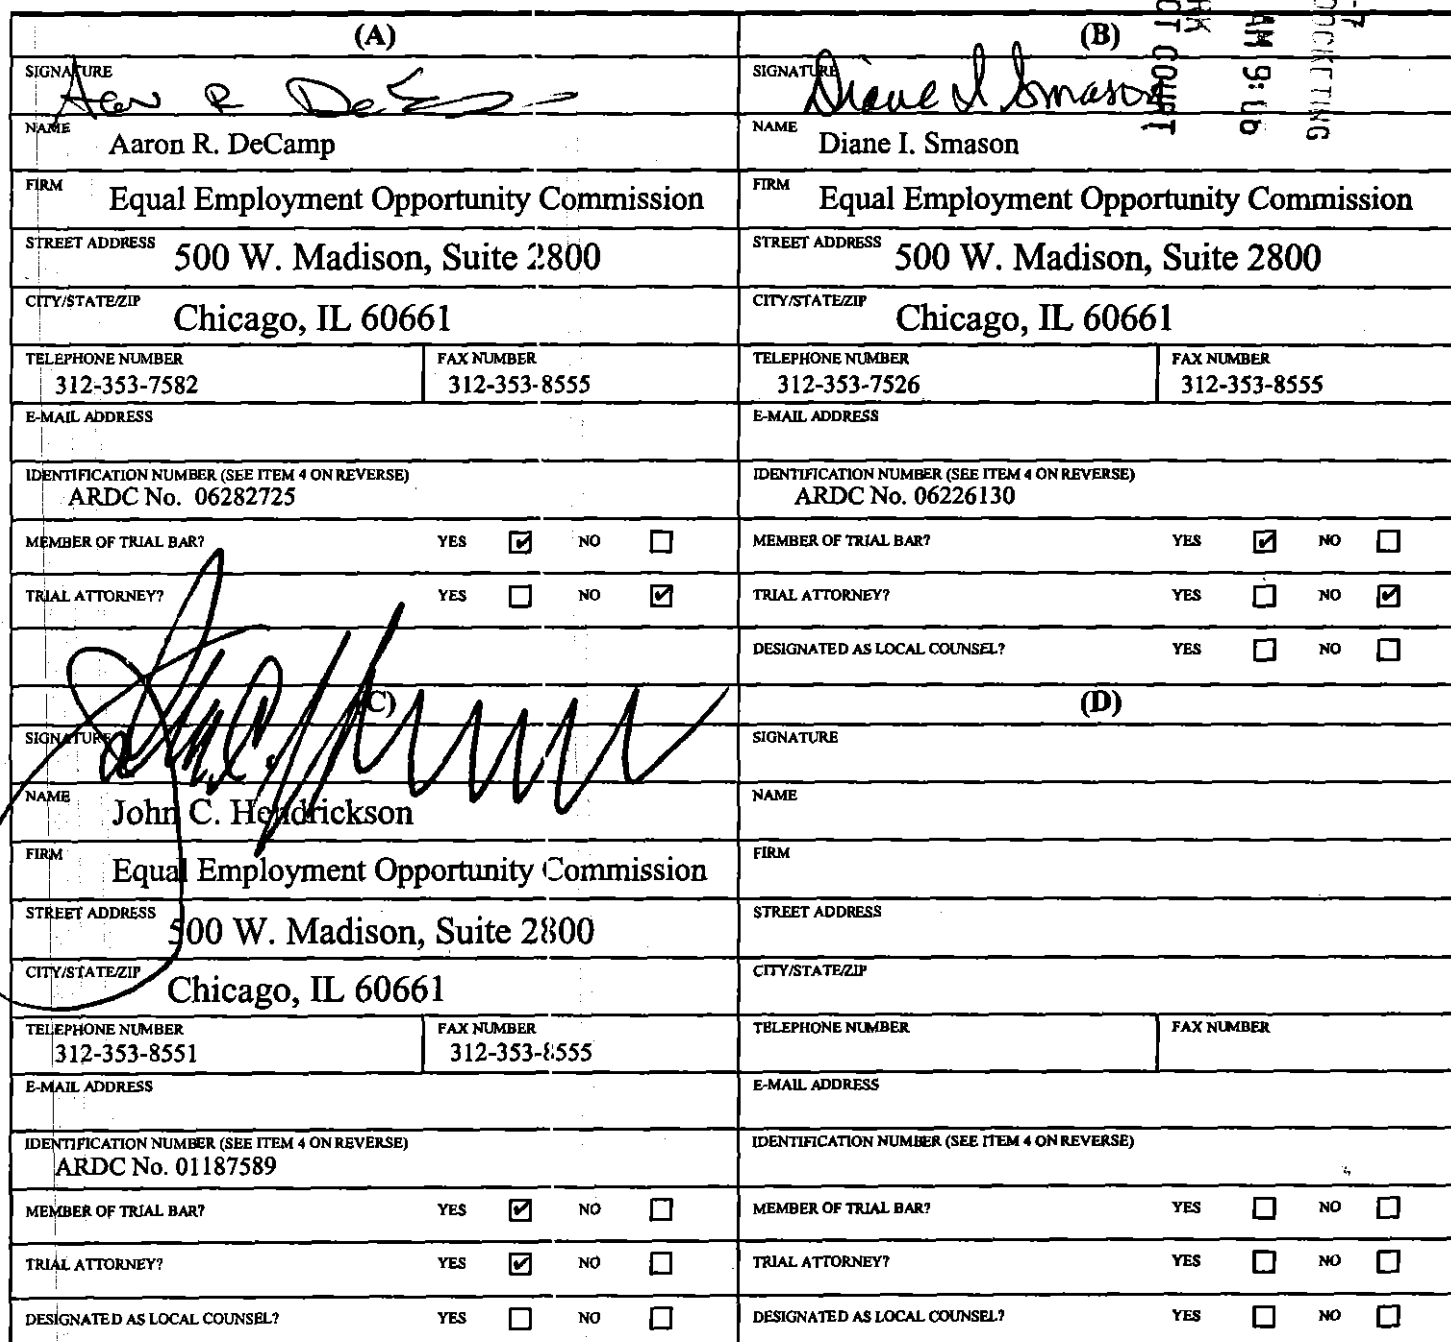 (A)
SIGNATURE
Aaron R DeCamp
NAME Aaron R. DeCamp
FIRM Equal Employment Opportunity Commission
STREET ADDRESS 500 W. Madison, Suite 2800
CITY/STATE/ZIP Chicago, IL 60661
TELEPHONE NUMBER FAX NUMBER
312-353-7582 312-353-8555
E-MAIL ADDRESS
IDENTIFICATION NUMBER (SEE ITEM 4 ON REVERSE)
ARDC No. 06282725
MEMBER OF TRIAL BAR? YES ☑ NO ☐
TRIAL ATTORNEY? YES ☐ NO ☑
(B)
SIGNATURE
Diane I Smason
NAME Diane I. Smason
FIRM Equal Employment Opportunity Commission
STREET ADDRESS 500 W. Madison, Suite 2800
CITY/STATE/ZIP Chicago, IL 60661
TELEPHONE NUMBER FAX NUMBER
312-353-7526 312-353-8555
E-MAIL ADDRESS
IDENTIFICATION NUMBER (SEE ITEM 4 ON REVERSE)
ARDC No. 06226130
MEMBER OF TRIAL BAR? YES ☑ NO ☐
TRIAL ATTORNEY? YES ☐ NO ☑
DESIGNATED AS LOCAL COUNSEL? YES ☐ NO ☐
DOCKETING
AM 9:06
CT COURT
(C)
SIGNATURE
NAME John C. Hendrickson
FIRM Equal Employment Opportunity Commission
STREET ADDRESS 500 W. Madison, Suite 2800
CITY/STATE/ZIP Chicago, IL 60661
TELEPHONE NUMBER FAX NUMBER
312-353-8551 312-353-8555
E-MAIL ADDRESS
IDENTIFICATION NUMBER (SEE ITEM 4 ON REVERSE)
ARDC No. 01187589
MEMBER OF TRIAL BAR? YES ☑ NO ☐
TRIAL ATTORNEY? YES ☑ NO ☐
DESIGNATED AS LOCAL COUNSEL? YES ☐ NO ☐
(D)
SIGNATURE
NAME
FIRM
STREET ADDRESS
CITY/STATE/ZIP
TELEPHONE NUMBER FAX NUMBER
E-MAIL ADDRESS
IDENTIFICATION NUMBER (SEE ITEM 4 ON REVERSE)
MEMBER OF TRIAL BAR? YES ☐ NO ☐
TRIAL ATTORNEY? YES ☐ NO ☐
DESIGNATED AS LOCAL COUNSEL? YES ☐ NO ☐